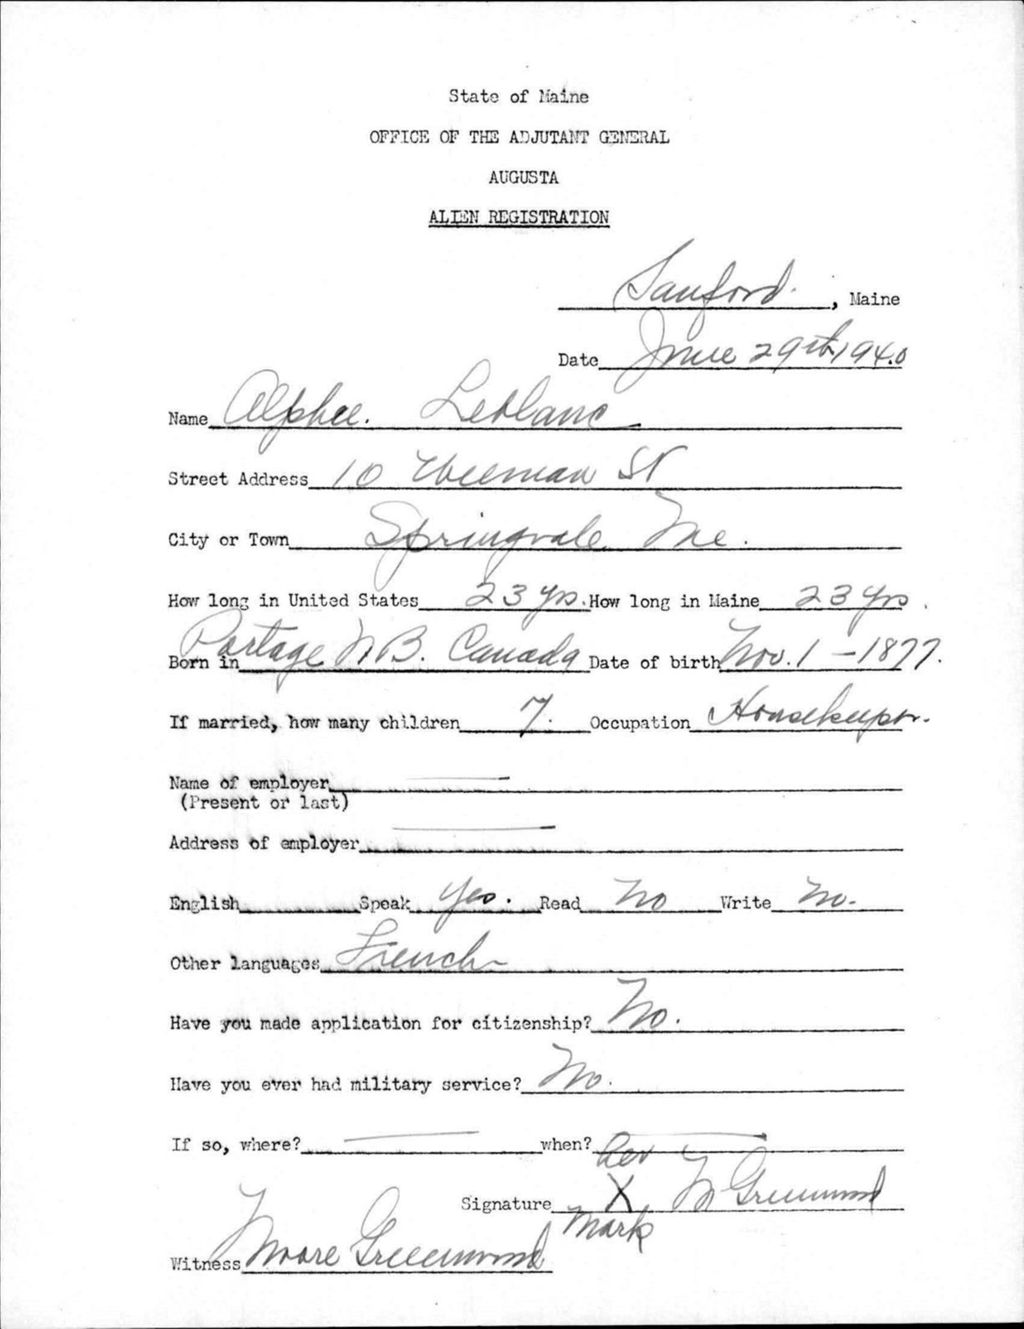 State of Maine
OFFICE OF THE ADJUTANT GENERAL
AUGUSTA
ALIEN REGISTRATION
Sanford, Maine
Date June 29th, 1940
Name Alphee. Leblanc
Street Address 10 St
City or Town Springvale Me.
How long in United States 23 yrs. How long in Maine 23 yrs.
Born in Portage N B. Canada Date of birth Nov. 1 - 1877.
If married, how many children 7. Occupation Housekeeper.
Name of employer
(Present or last)
Address of employer
English Speak Yes. Read No Write No.
Other languages French
Have you made application for citizenship? No.
Have you ever had military service? No.
If so, where? when?
her
Signature X M Greenwood
mark
Witness Moore Greenwood